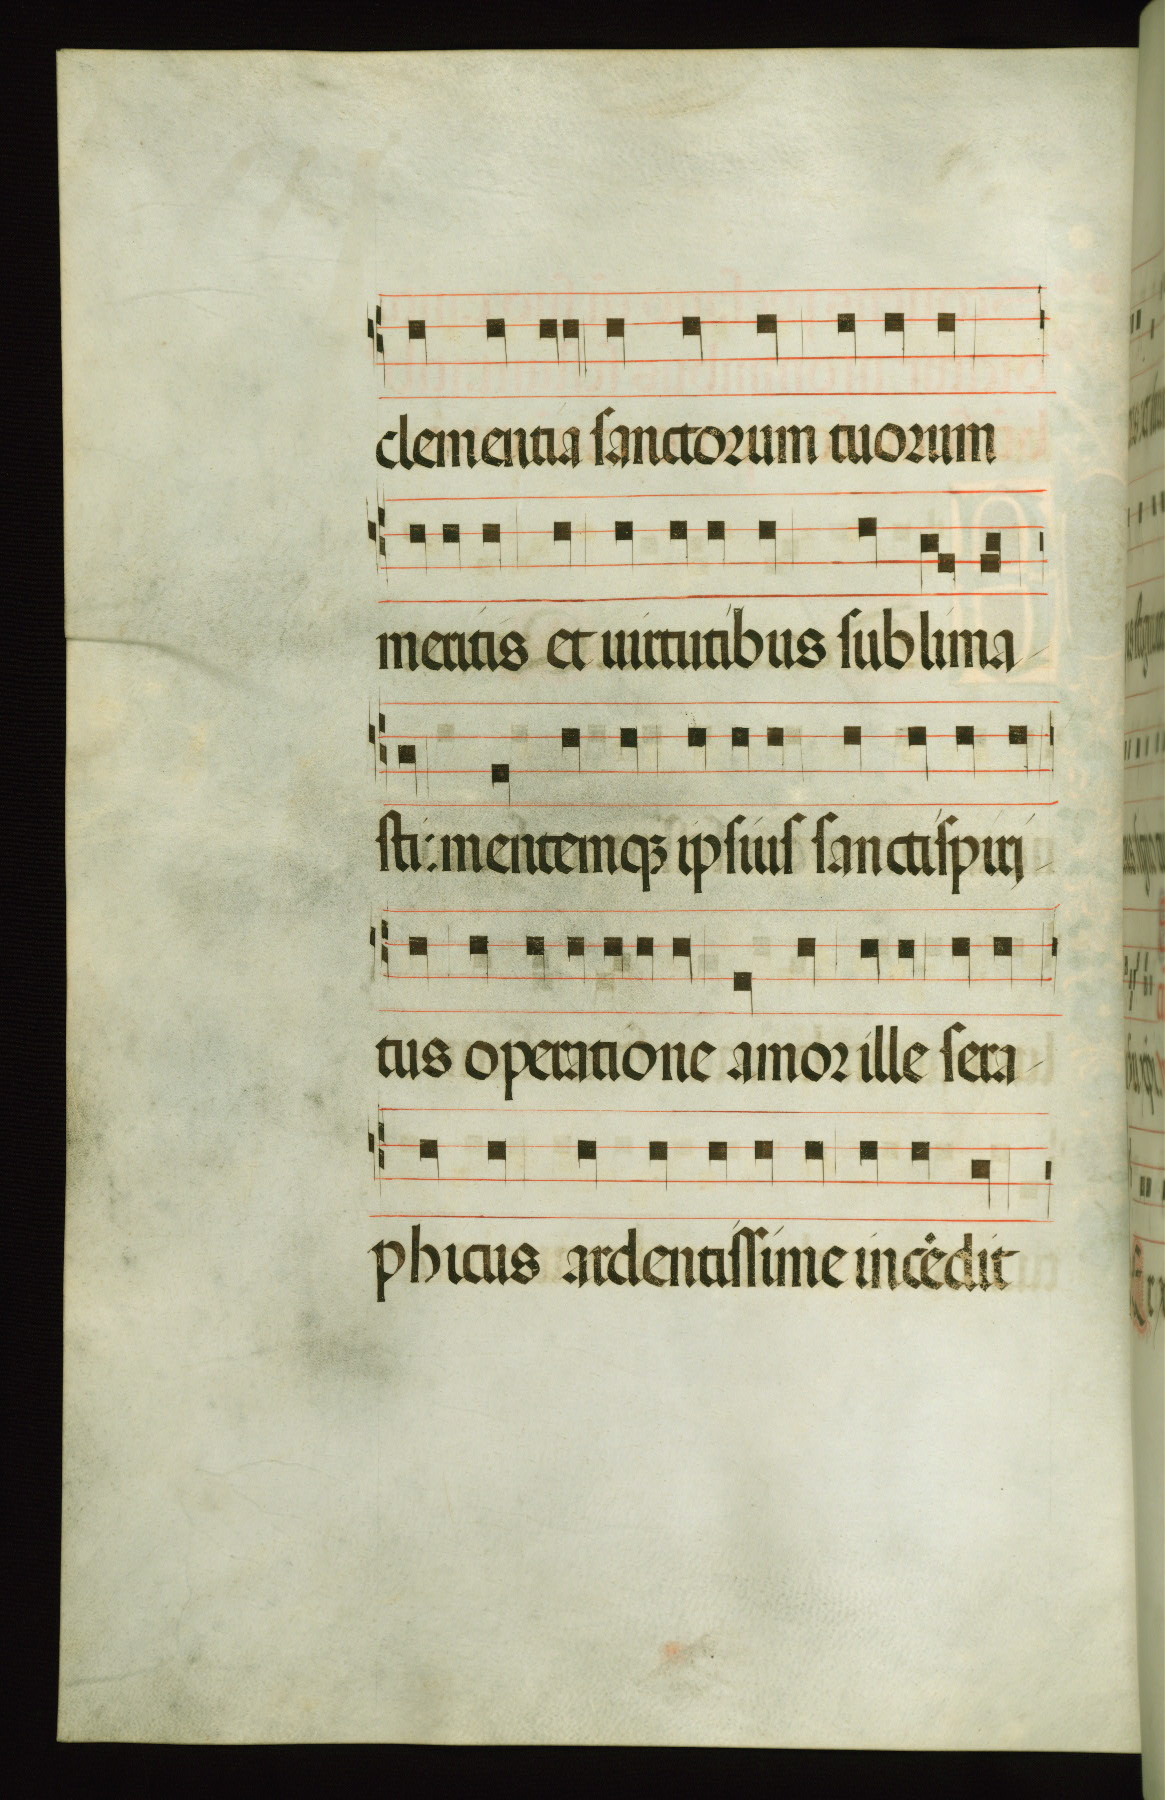 clementia sanctorum tuorum
meritis et uirtutibus sublima-
sti: mentemqꝫ ipsius sancti spiri-
tus operatione amor ille sera-
phicus ardentissime incēdit